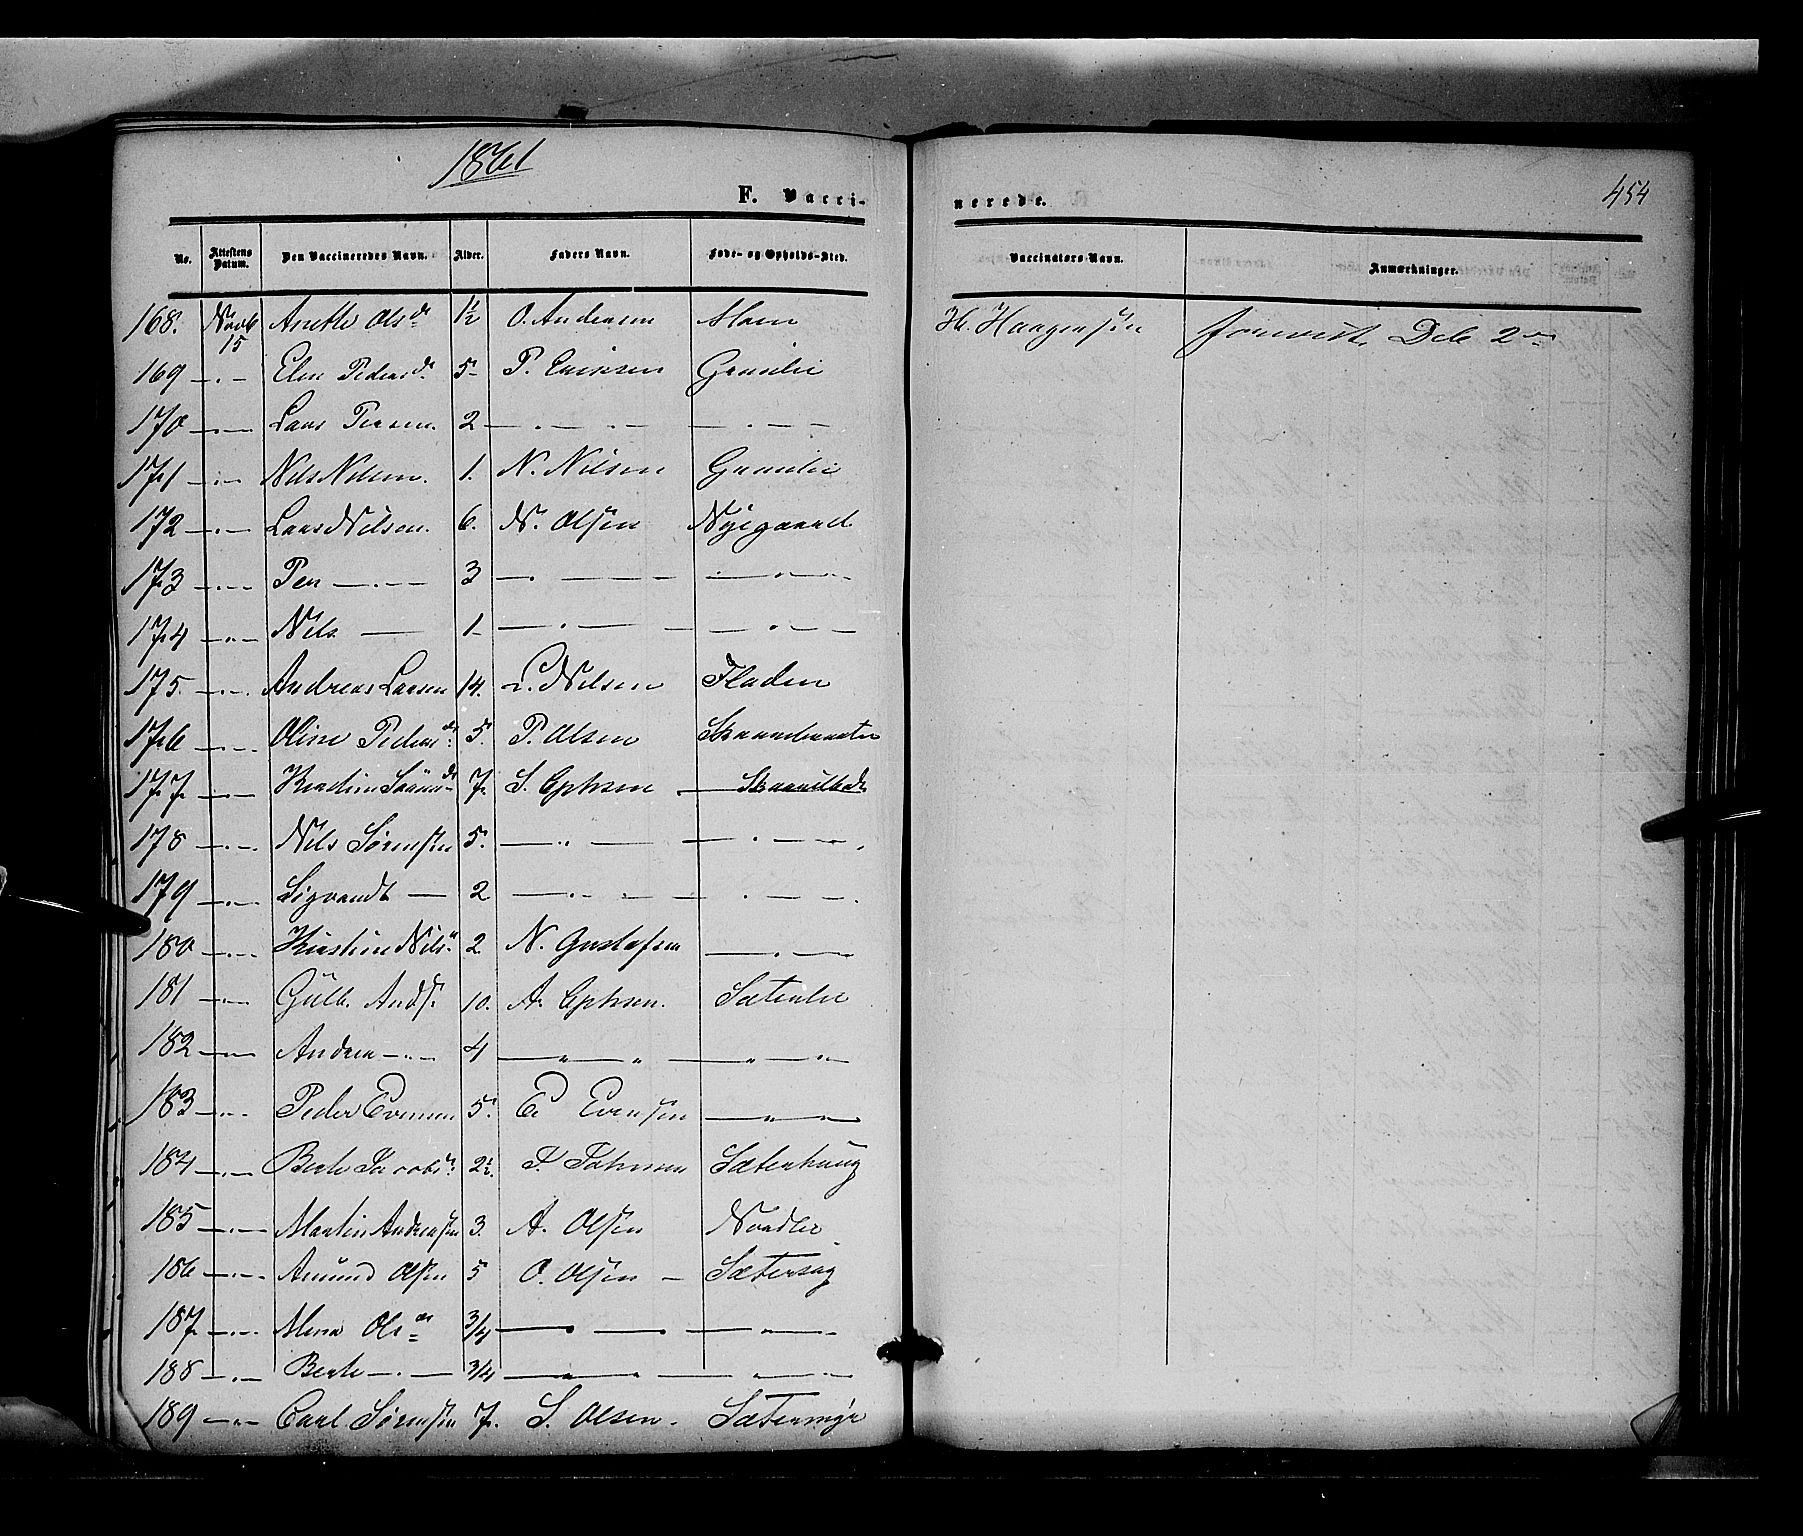 1861
F. Vacci-
No. Attestens Datum. Den Vaccineredes Navn. Alder. Faders Navn. Føde- og Opholds-Sted.
168. Novb 15 Anette Olsdr 1½ O. Andersen
169 -.- Elen Pedersdr 5 P. Eriksen
170 -.- Lars Persen 2 -.-.- -.-.-
171 -.- Nils Nilsen. 1. N. Nilsen
172 -.- Lars Nilsen. 6. N. Olsen Nygaard
173 -.- Per -.- 3 -.- -.-
174 -.- Nils - 1 -.- -.-
175 -.- Andreas Larsen 14. L. Nilsen Fladen
176 -.- Oline Pedersdr 5. P. Olsen
177 -.- 7 S. Ephsen
178 -.- Nils Sørensen 5. -.- -.-
179 -.- Sigvardt - 2 -.- -.-
180 -.- Kirstine Nilsdr 2 N. Gustafsen -.-
181 -.- Gulb. Ands. 10. A. Ephsen. Sæterlie
182 -.- Andrea -.- 4 -"-"- -"-"-
183 -.- Peder Evensen 5. E Evensen -"-"-
184 -.- Berte Jacobsdr 2½ Sæterhaug
185 -.- Martin Andreasen 3. A. Olsen Nordlie
186 -.- Amund Olsen 5 O. Olsen - Sætersag
187 -.- Olsdr 3/4 -.- -.-
188 -.- Berte -.- 3/4 -"-"- -.-
189 -"- Carl Sørensen 7. S. Olsen. Sætermyr
454
nerede.
Vaccinators Navn. Anmærkninger.
H. Haagensen